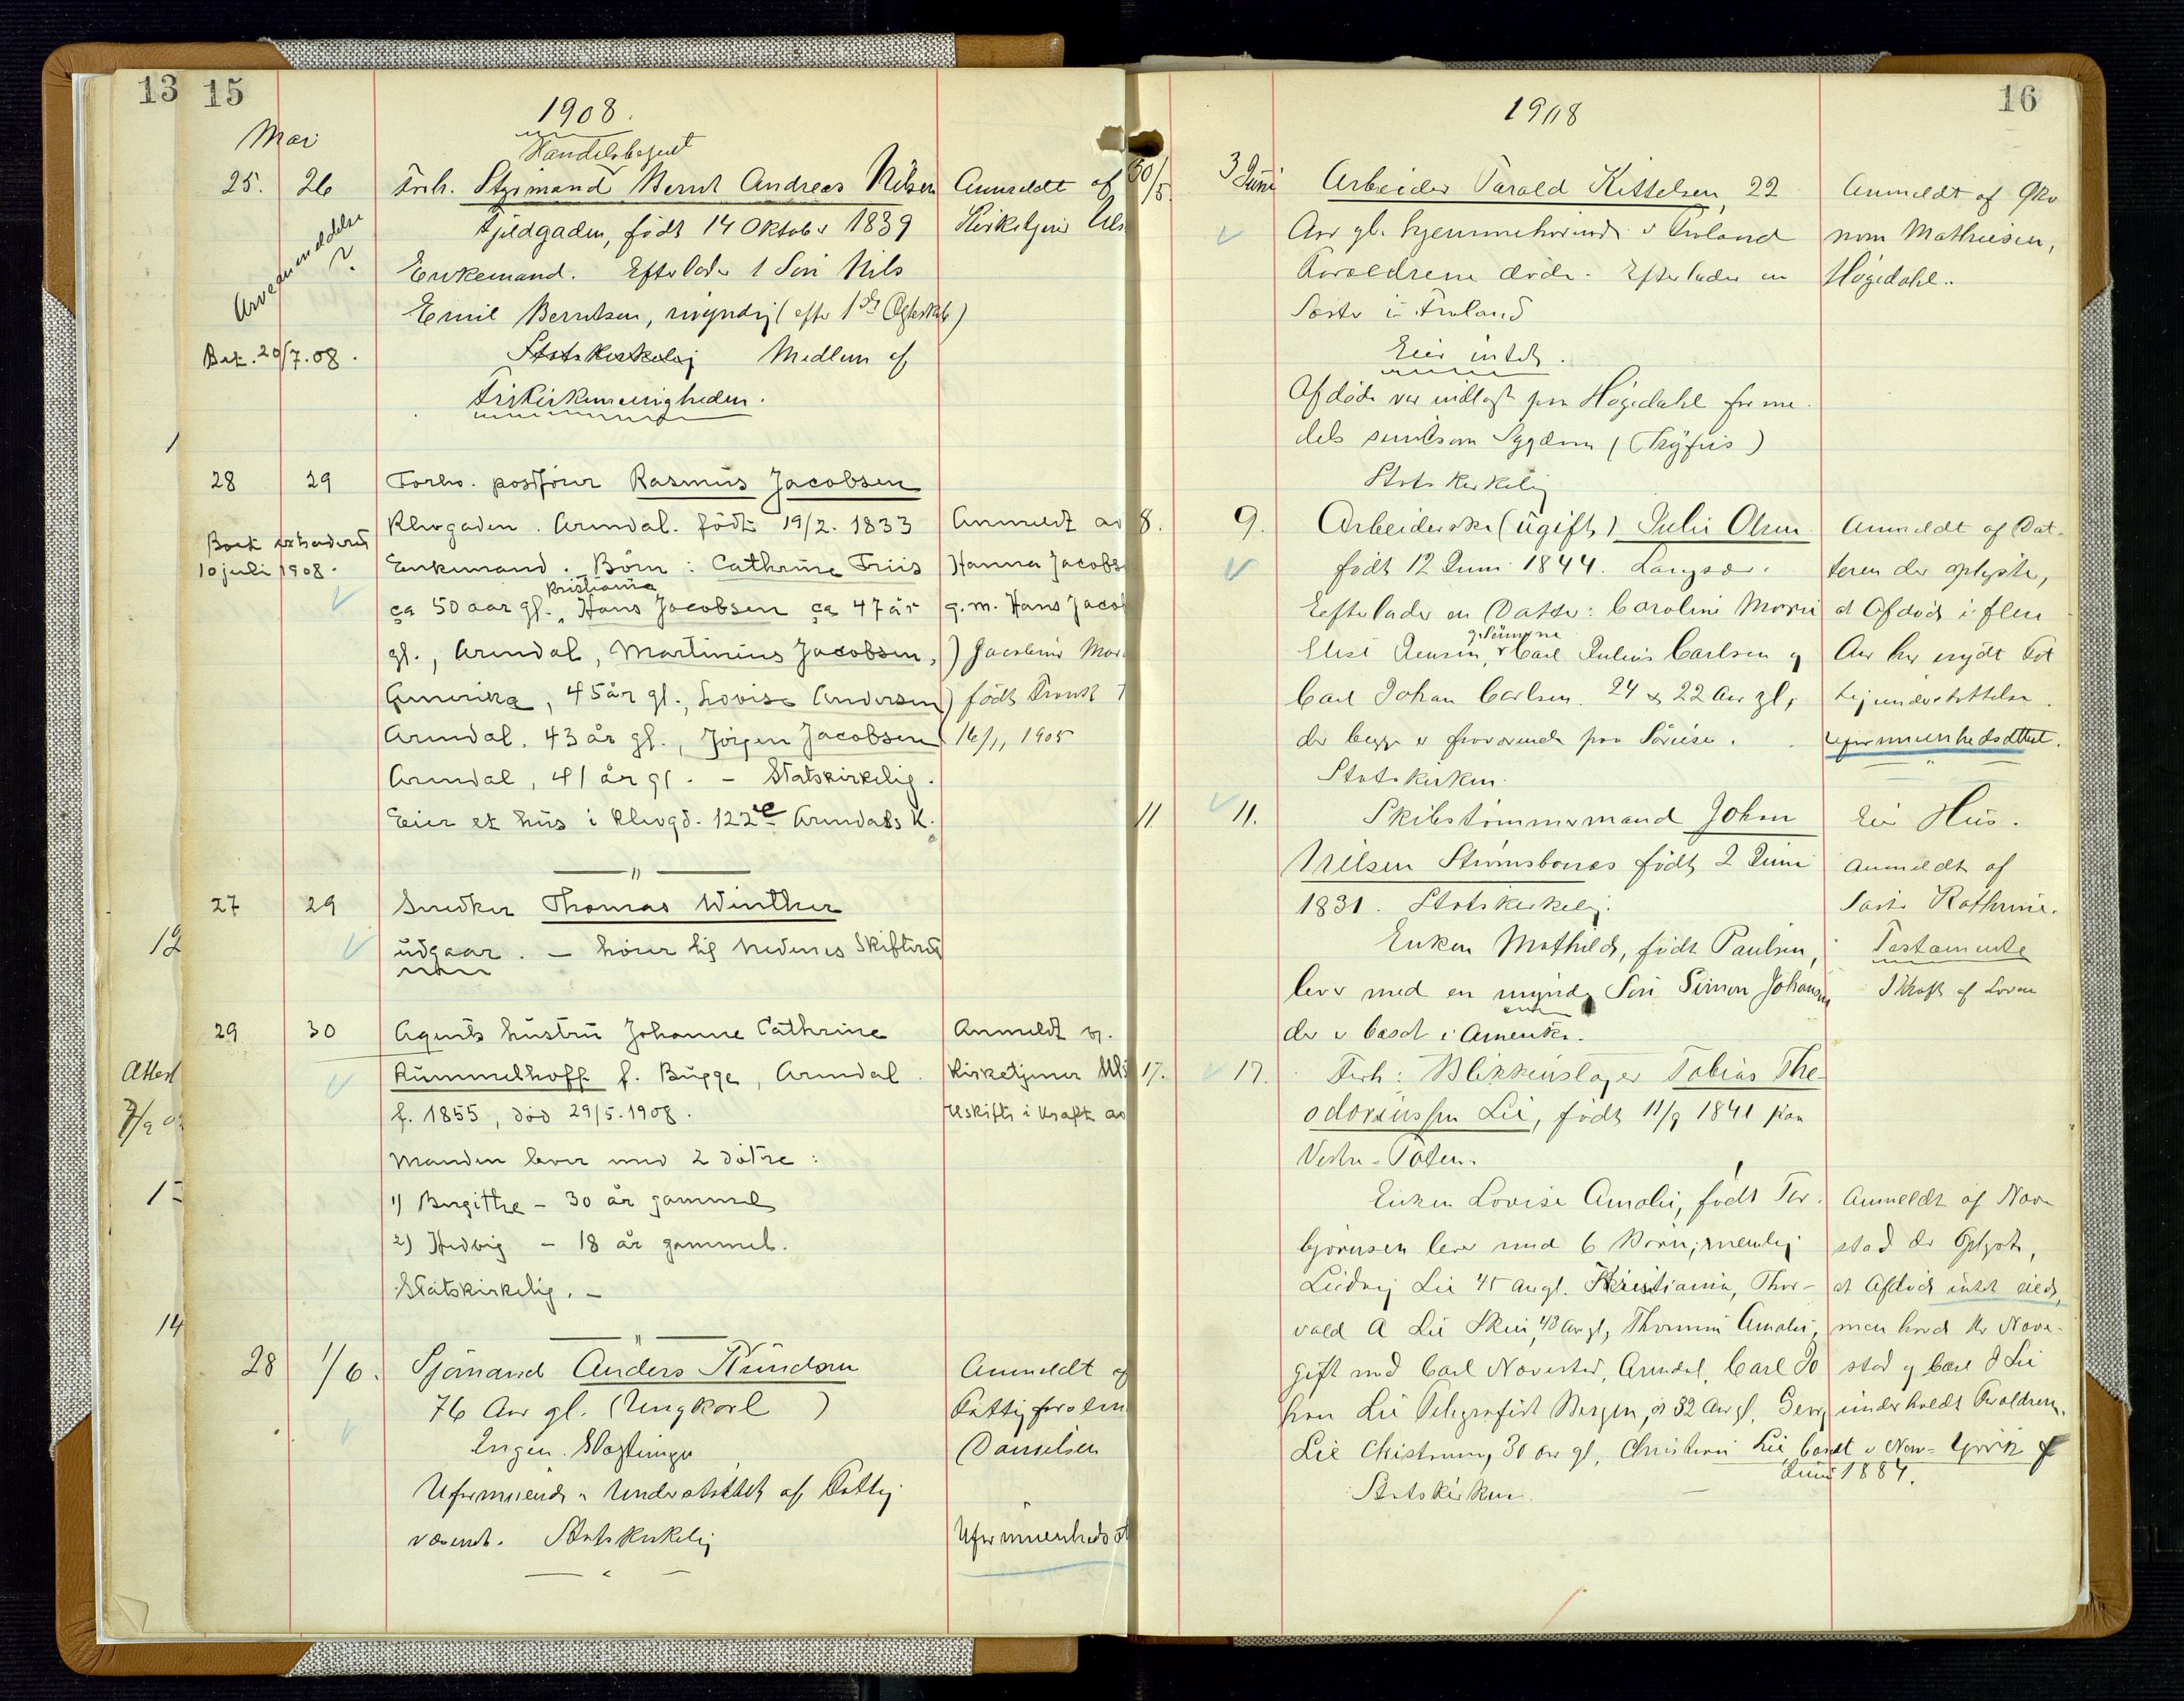 13 15
1908.
Mai
Handelsbetjent
25. 26 Forh. Styrmand Bernt Andreas Nilsen Anmeldt af
Fjeldgaden, født 14 Oktober 1839 Kirketjener
Arveanmeldelse
Enkemand. Efterlader 1 Søn Nils
Emil Berntsen, myndig (efter 1ste Ægteskab)
Bek. 20/7.08. Statskirkelig Medlem af
Frikirkemenigheden.
28 29 Forhv. postfører Rasmus Jacobsen
Klevgaden. Arendal. født 19/2. 1833 Anmeldt av
10 juli 1908. Enkemand. Børn: Cathrine Friis Hanna Jacobs
Kristiania
ca 50 aar gl., Hans Jacobsen ca 47 år g. m. Hans Jacob
gl., Arendal, Martinius Jacobsen,
Amerika, 45 år gl., Lovise Andersen) født
Arendal, 43 år gl., Jörgen Jacobsen 16/1, 1905
Arendal, 41 år gl. - Statskirkelig.
Eier et hus i Klevgd. 122e Arendals K.
27 29 Snedker Thomas Winther
udgaar. - hører til Nedenes Skifteret
29 30 Agents hustru Johanne Cathrine Anmeldt
Rummelhoff f. Bugge, Arendal. Kirketjener
f. 1855, død 29/5.1908. Uskifte i Kraft av
Manden lever med 2 døtre:
1) Birgitthe - 30 år gammel
2) Hedvig - 18 år gammel.
Statskirkelig. -
28 1/6. Sjömand Anders Knudsen Anmeldt af
76 Aar gl. (Ungkarl) Fattigforstan
Ingen Slægtninge Danielsen
Uformuende. Understøttet af Fattig
væsenet. Statskirkelig Uformuenhedsat
16
1908
30/5. 3 Juni Arbeider Tarald Kittelsen, 22 Anmeldt af Øko
Aar gl. hjemmehørende i Froland nom Mathiesen,
Forældrene døde. Efterlader en Høgedahl.
Søster i Froland
Eier intet.
Afdøde var indlagt paa Høgedahl forme
dels smitsom Sygdom (Tyfus)
Statskirkelig
8. 9. Arbeiderske (ugift) Julie Olsen Anmeldt af Dat-
født 12 Juni 1844. Langsæ. teren der oplyste,
Efterlader en Datter: Caroline Marie at Afdøde i flere
g Sønnene
Elise Jensen, Carl Julius Carlsen og Aar har nydt Fat
Carl Johan Carlsen. 24 & 22 Aar gl, tigunderstøttelse.
der begge er fraværende paa Søreise. Uformuenhedsattest.
Statskirken.
11. 11. Skibstømmermand Johan Eier Hus.
Nilsen Strømsbonæs født 2 Juni Anmeldt af
1831. Statskirkelig. Søster Kathrine.
Enken Mathilde, født Paulsen, Testamente
lever med en myndig Søn Simon Johansen I Kraft af Loven
der er bosat i Amerika.
17. 17. Forh: Blikkenslager Tobias The
odoriussen Lie, født 11/9 1841 paa
Vestre-Toten.
Enken Lovise Amalie, født Tor Anmeldt af Nave
bjørnsen lever med 6 Børn, nemlig stad der Oplyste,
Ludvig Lie 45 Aar gl. Kristiania, Thor- at Afdøde intet eiede,
vald A Lie Skien, 43 Aar gl, Thomine Amalie, men havde Hr Nave-
gift med Carl Navestad, Arendal, Carl Jo stad og Carl J Lie
han Lie Telegrafist Bergen, 32 Aar gl, Georg underholdt Forældrene.
Lie 30 Aar gl, Christian Lie, bosat i New-York f
Juni 1884.
Statskirken.